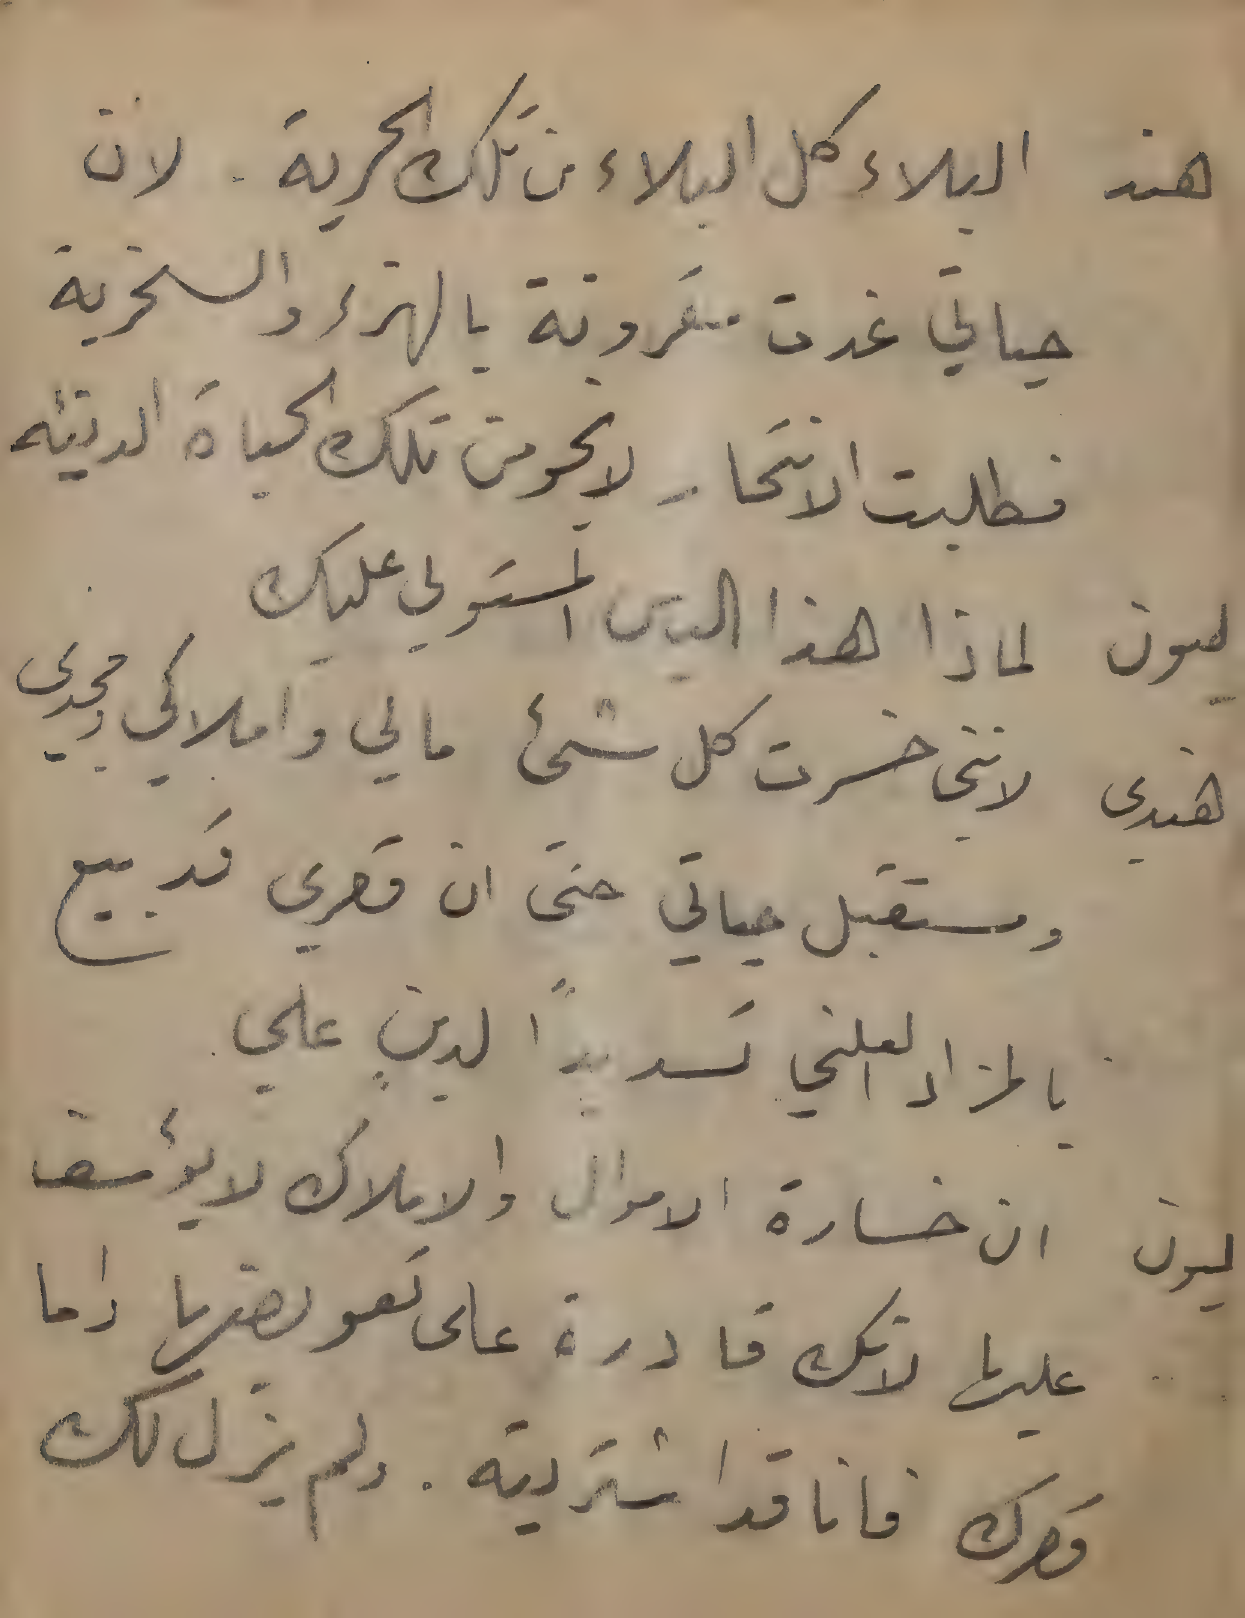 هند البلاء كل البلاء من تلك الحرية . لان
حياتي غدت مقرونة بالهزء والسخرية
فطلبت الانتحار لانجو من تلك الحياة الدنيئه
ليون لماذا هذا اليأس المستولي عليك
هندي لانني خسرت كل شئ مالي واملاكي ومجدي
ومستقبل حياتي حتى ان قصري قد بيع
بالمزاد العلني تسديداً لدينٍ علي
ليون ان خسارة الاموال والاملاك لا يؤسف
عليها لانك قادرة على تعويضها واما
قصرك فانا قد اشتريته . ولم يزل لك